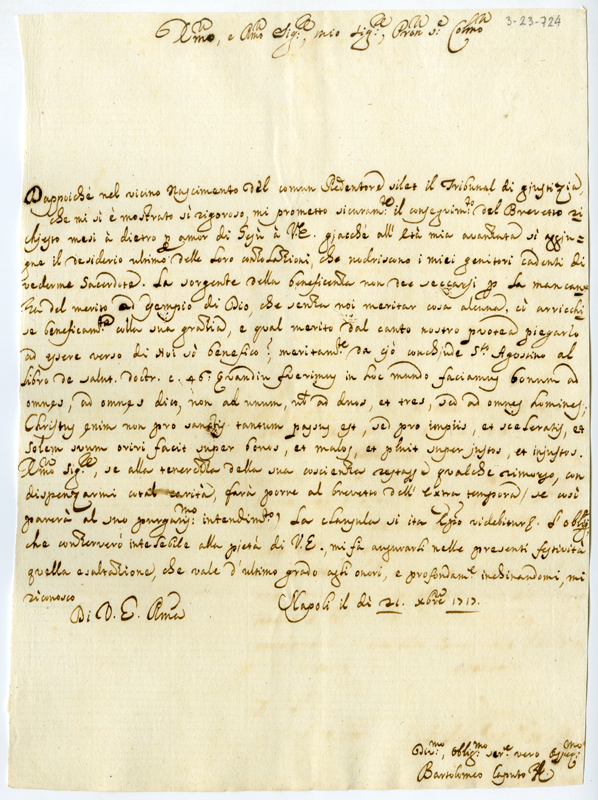 3-23-724
Ill.mo, e Rmo Sig.re, mio Sig.re, Pron si Colmo
Dappoiche nel vicino Nascimento del comun Redentore silet il Tribunal di giustizia,
che mi si è mostrato sì rigoroso, mi prometto sicuram.te il conseguim.to del Brevetto ri
chiesto mesi à dietro p amor di Gesù à V.E. giacchè all'età mia avanzata si aggiu=
gne il desiderio ultimo delle loro consolazioni, che nodriscono i miei genitori cadenti di
vederme Sacerdote. La sorgente della beneficenza non dee seccarsi p la mancan
za del merito ad esempio di Dio, che senza noi meritar cosa alcuna, ci arricchi
sce beneficam.te colla sua grazia, e qual merito dal canto nostro potea piegarlo
ad essere verso di noi sò benefico? meritam.te da ciò conchiude S.to Agostino al
libro de salut. doctr. c. 46. Quandiu fuerimus in hoc mundo faciamus bonum ad
omnes, ad omnes dico, non ad unum, vel ad duos, et tres, sed ad omnes homines;
Christus enim non pro sanctis tantum passus est, sed pro impiis, et sceleratis, et
solem suum oriri facit super bonos, et malos, et pluit super justos, et injustos.
Ill.mo Sig.re, se alla tenerezza della sua coscienza restasse qualche rimorso, con
dispenzarmi cotal carità, farà porre al brevetto dell'extra tempora (se così
parerà al suo purgatis.mo intendim.to) La clausula si ita Epo videbitur. L'oblig.e
che conserverò indelebile alla pietà di V.E., mi fà augurarli nelle presenti festività
quella esaltazione, che vale d'ultimo grado agli onori, e profondam.e inchinandomi, mi
riconosco
Di V. E. Rma Napoli il dì 21. xbre 1717.
Div.mo, oblig.mo ser.e vero osseq.mo
Bartolomeo Caputo